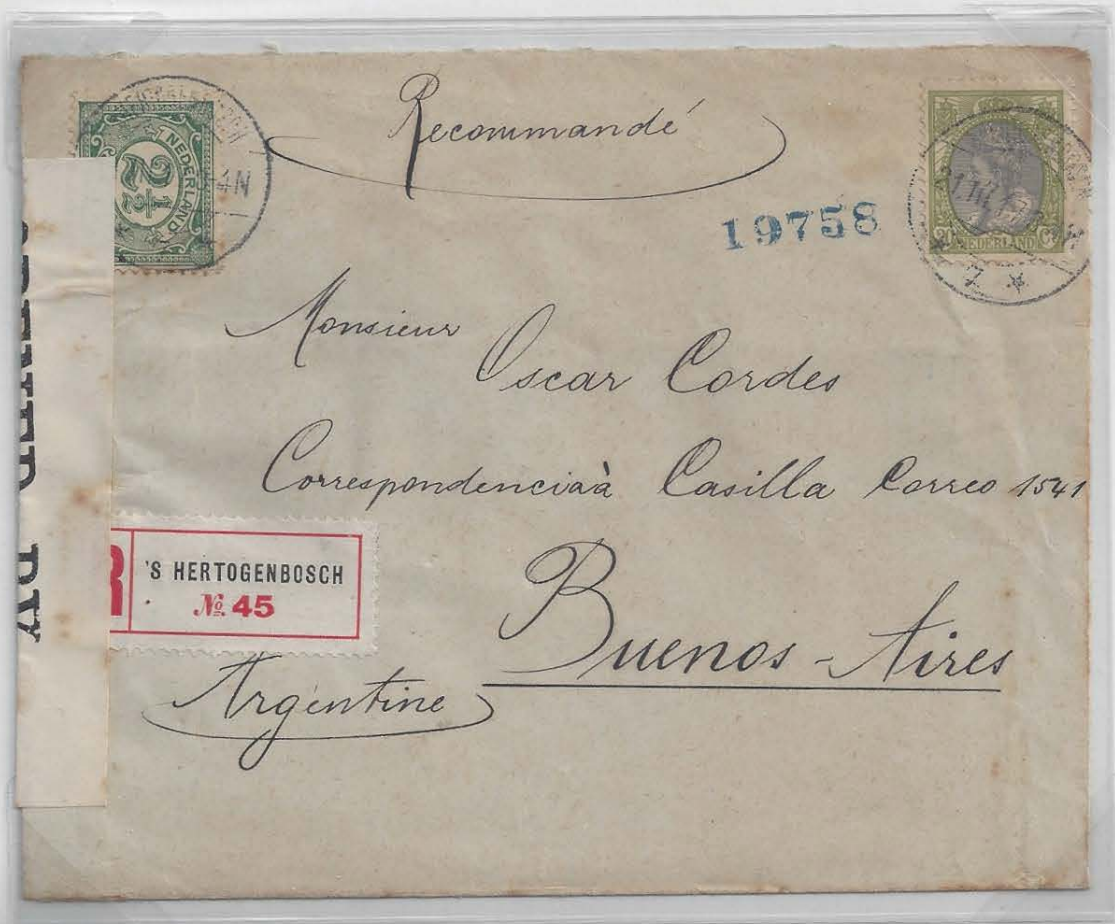 Recommandé
2½
NEDERLAND
4N
19758
20 Ct
NEDERLAND
7
Monsieur
Oscar Cordes
Correspondenciaà Casilla Correo 1541
Buenos-Aires
Argentine
R
'S HERTOGENBOSCH
№ 45
OPENED BY